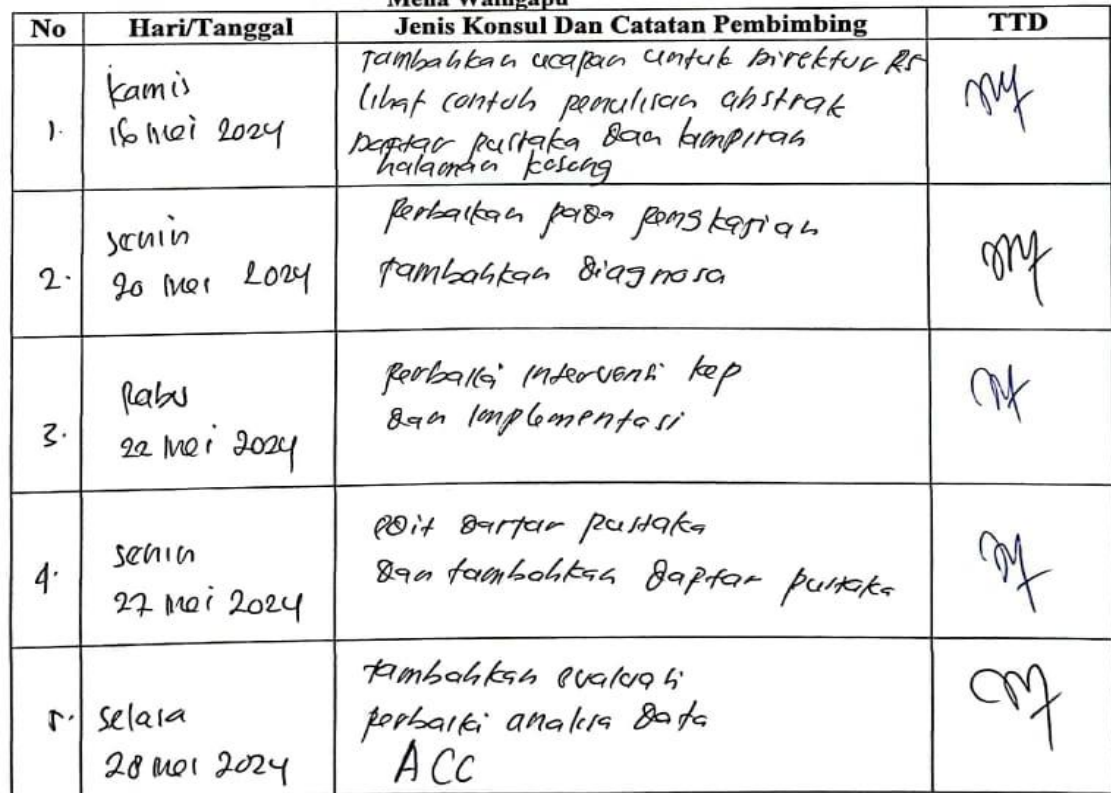 Meha Waingapu
No Hari/Tanggal Jenis Konsul Dan Catatan Pembimbing TTD
1. Kamis
16 Mei 2024
Tambahkan ucapan untuk Direktur RS
Lihat contoh penulisan abstrak
Daftar pustaka dan lampiran
halaman kosong
2. Senin
20 Mei 2024
Perbaikan pada pengkajian
Tambahkan diagnosa
3. Rabu
22 Mei 2024
Perbaiki intervensi kep
dan implementasi
4. Senin
27 Mei 2024
edit daftar pustaka
dan tambahkan daftar pustaka
5. Selasa
28 Mei 2024
Tambahkan evaluasi
perbaiki analisa data
ACC